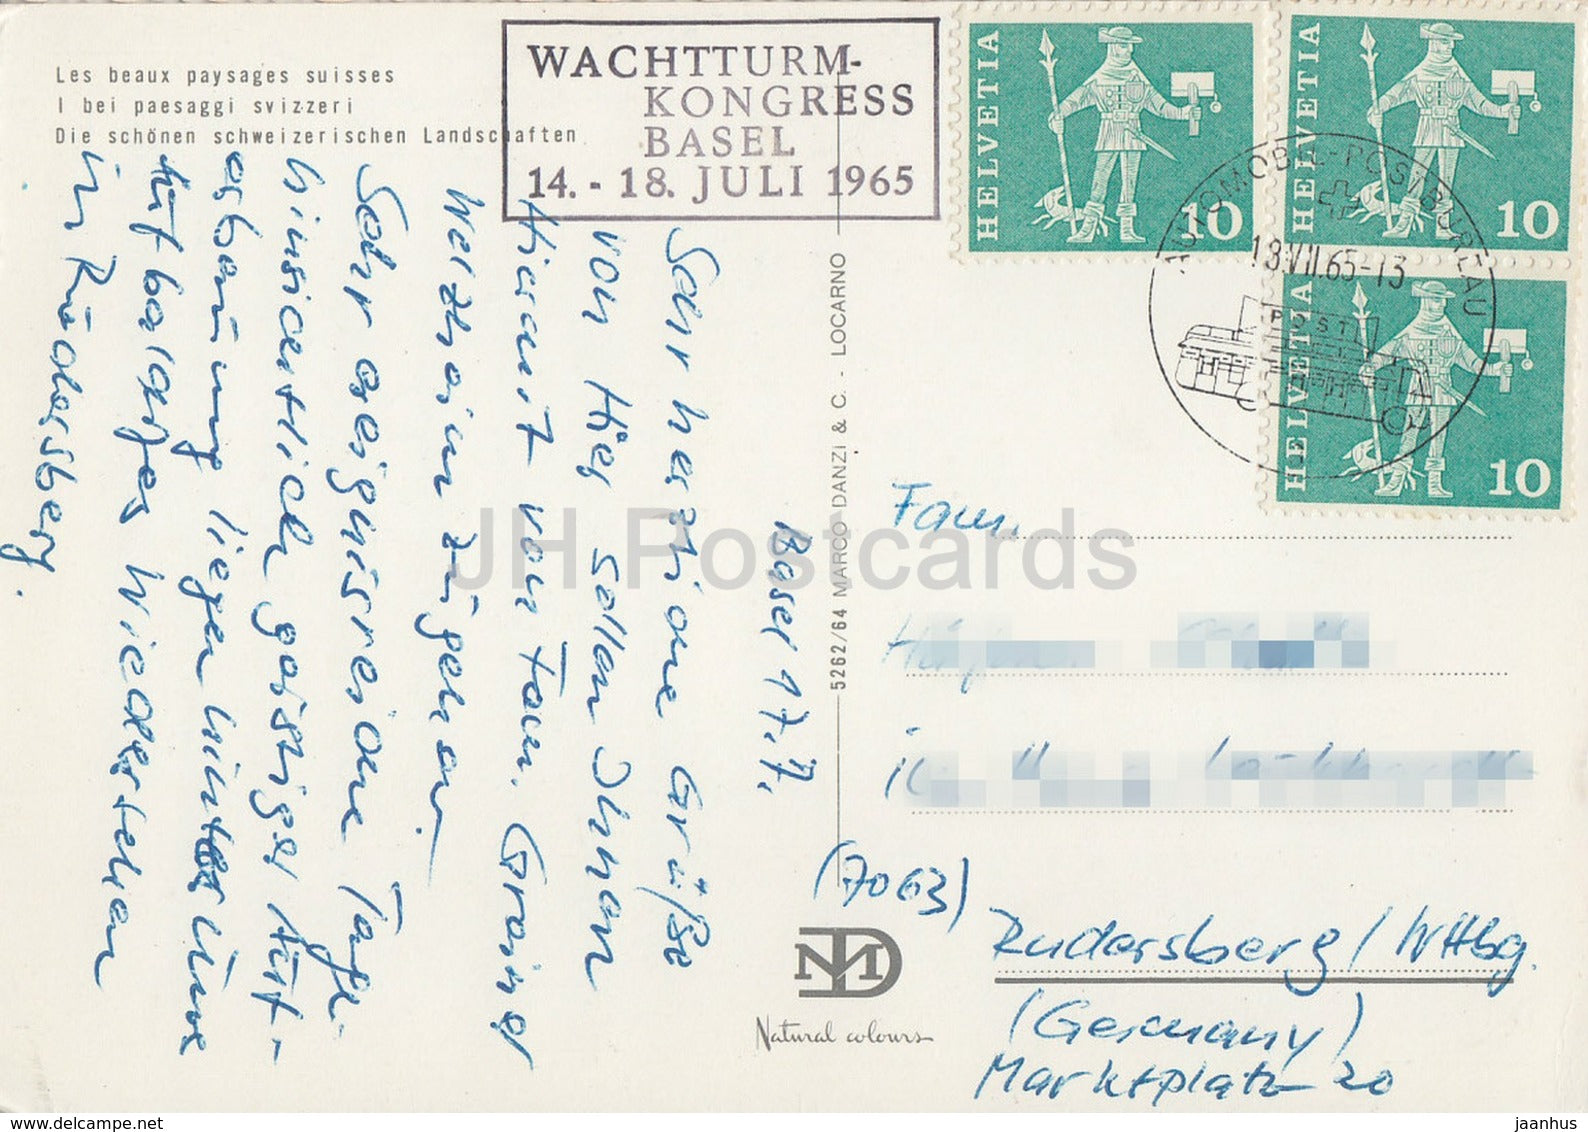 Les beaux paysages suisses
I bei paesaggi svizzeri
Die schönen schweizerischen Landschaften
WACHTTURM-
KONGRESS
BASEL
14. - 18. JULI 1965
HELVETIA 10
HELVETIA 10
HELVETIA 10
AUTOMOBIL-POSTBUREAU
18.VII.65-13
POST
Basel 17.7.
Sehr herzliche Grüße
von hier sollen Ihnen
hierauf von Fam. Greiner
Welzheim zugehen.
Sehr ereignisreiche Tage
hinsichtlich geistiger Auf-
erbauung liegen hinter uns
Auf baldiges Wiedersehen
in Rudersberg.
5262/64 MARCO DANZI & C. - LOCARNO
Fam.
(7063)
Rudersberg / Wttbg.
(Germany)
Marktplatz 20
MD
Natural colours
JH Postcards
www.delcampe.net
jaanhus